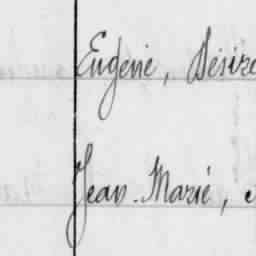 Eugène, Désiré
Jean-Marie,